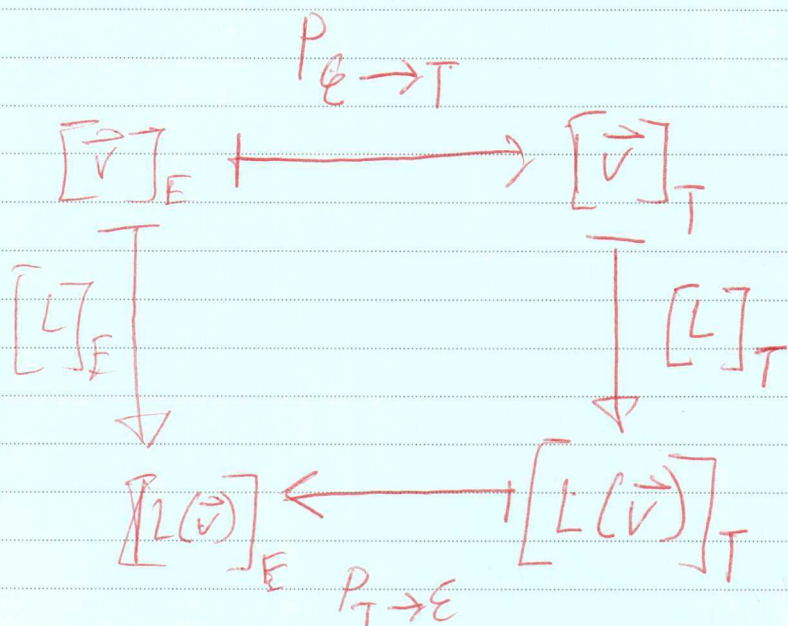 P_{ε→T}
[v⃗]_E ↦ [v⃗]_T
[L]_E [L]_T
[L(v⃗)]_E ↤ [L(v⃗)]_T
P_{T→ε}